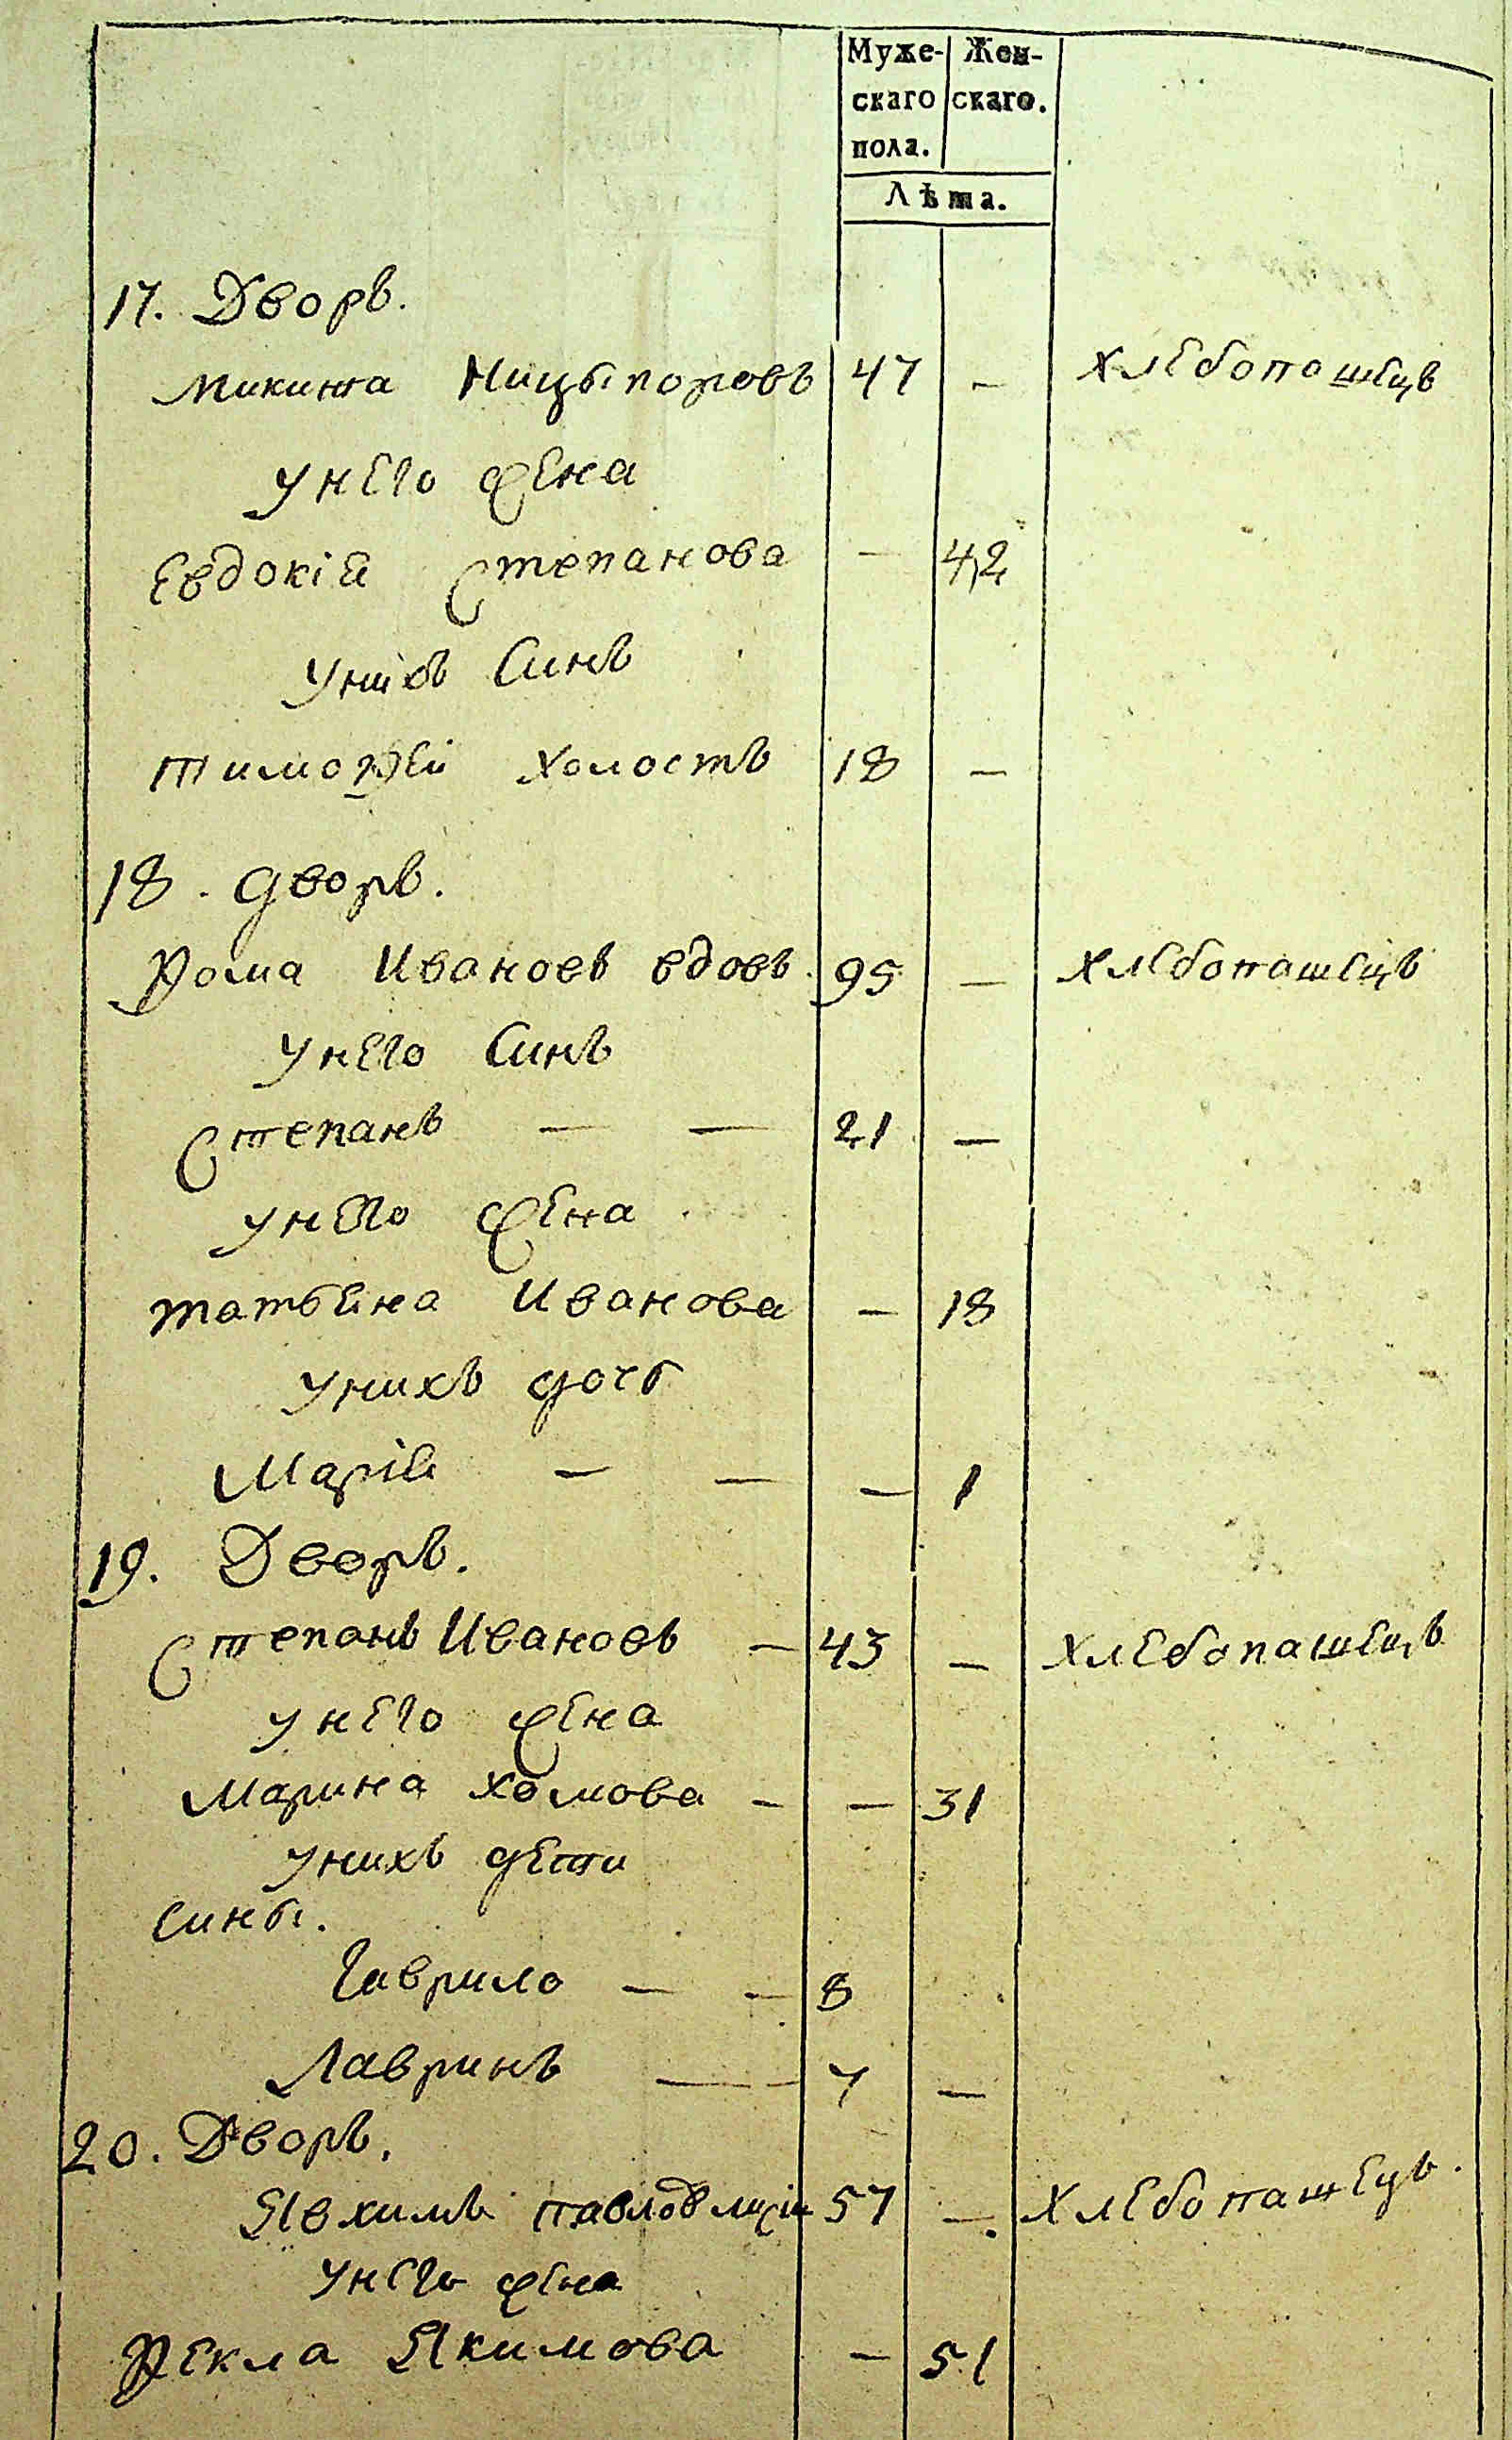 Муже- Жен-
скаго скаго.
пола.
Лѣта.
17. Дворъ.
Микита Ницыпоровъ 47 — хлебопашецъ
унего жена
Евдокія Степанова — 42
унихъ Синъ
тимофей холостъ 18 —
18. дворъ.
Фома Ивановъ вдовъ 95 — хлебопашецъ
унего Синъ
Степанъ — — 21 —
унего жена
татьяна Иванова — 18
унихъ дочь
Марія — — — 1
19. Дворъ.
Степанъ Ивановъ — 43 — хлебопашецъ
унего жена
Марина хомова — — 31
унихъ дети
Сины.
Гаврило — — 8
Лавринъ — — 7 —
20. Дворъ.
Явхимъ павлов 57 — хлебопашецъ.
унего жена
Фекла Якимова — 51